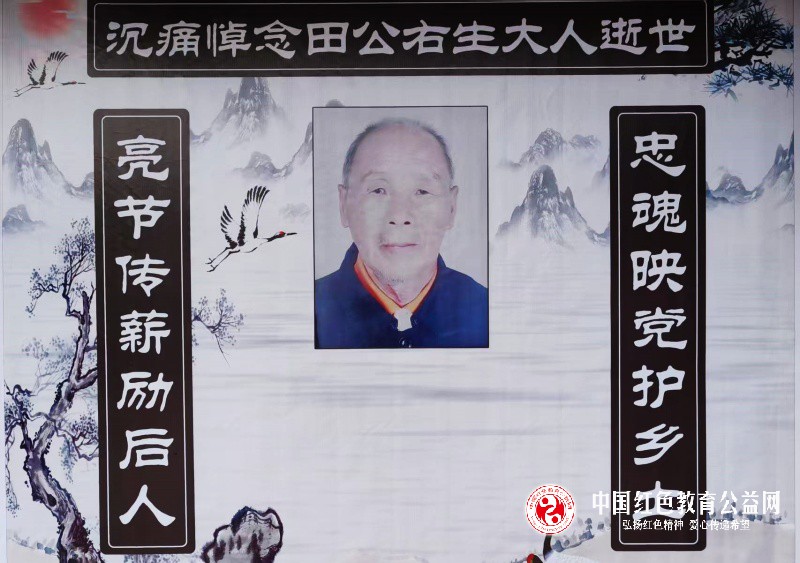 沉痛悼念田公右生大人逝世
忠魂映党护乡土
亮节传薪励后人
中国红色教育公益网
弘扬红色精神 爱心传递希望